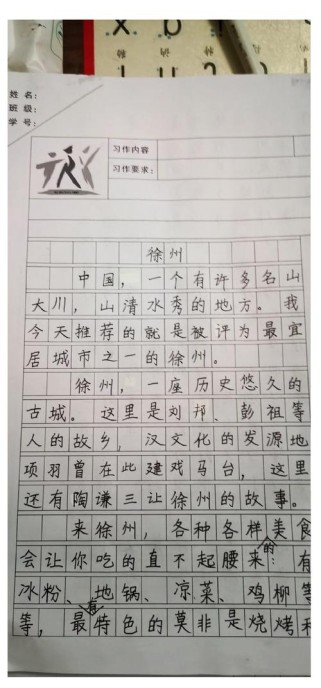 姓名：
班级：
学号：
习作内容
习作要求：
徐州
中国，一个有许多名山
大川，山清水秀的地方。我
今天推荐的就是被评为最宜
居城市之一的徐州。
徐州，一座历史悠久的
古城。这里是刘邦、彭祖等
人的故乡，汉文化的发源地
项羽曾在此建戏马台，这里
还有陶谦三让徐州的故事。
来徐州，各种各样美食
会让你吃的直不起腰来的：有
冰粉、地锅、凉菜、鸡柳等
等，最有特色的莫非是烧烤和